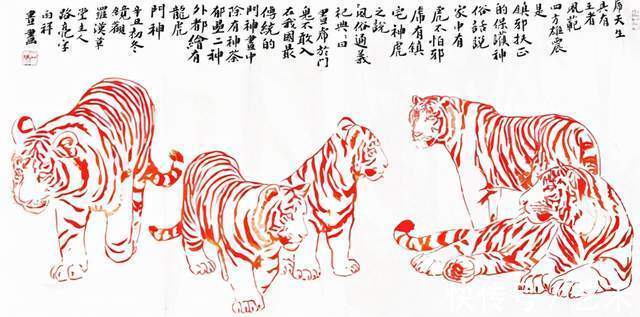 虎天生
具有
王者
風範
四方雄震
是
鎮邪扶正
的保護神
俗話說
家中有
虎不怕邪
虎有鎮
宅神虎
之說
風俗通義
祀典:曰
畫虎於門
不敢入
在我國最
傳統的
門神畫中
除有神荼
郁壘二神
外都繪有
龍虎
門神
辛丑初冬
鏡觀
羅漢草
堂主人
路亮字
雨祥
畫畫
快传号